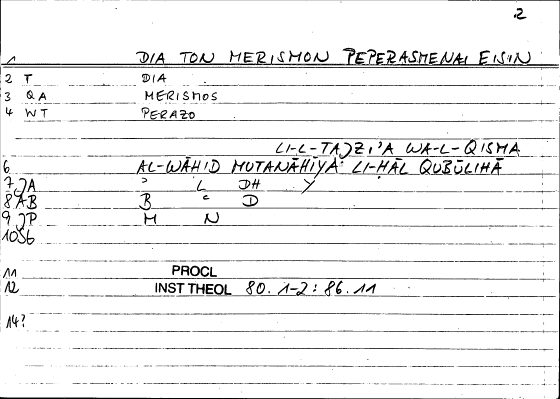 2
1 DIA TON MERISMON PEPERASMENAI EISIN
2 T DIA
3 QA MERISMOS
4 WT PERAZO
LI-L-TAJZI'A WA-L-QISMA
6 AL-WĀHID MUTANĀHĪYA LI-ḤĀL QUBŪLIHĀ
7 JA ' L DH Y
8 AB B ʿ D
9 JP M N
10 SG
11 PROCL
12 INST THEOL 80.1-2: 86.11
14?